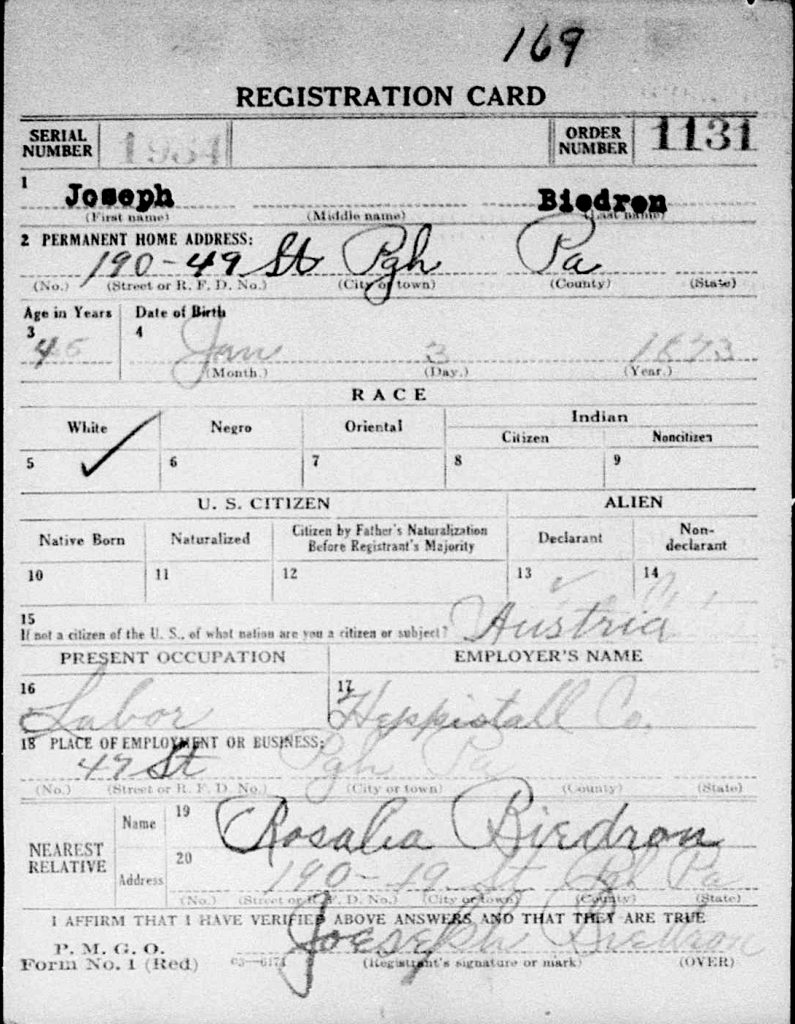 169
REGISTRATION CARD
SERIAL NUMBER 1934 ORDER NUMBER 1131
1 Joseph Biedron
(First name) (Middle name) (Last name)
2 PERMANENT HOME ADDRESS:
190-49 St Pgh Pa
(No.) (Street or R. F. D. No.) (City or town) (County) (State)
Age in Years Date of Birth
3 4
45 Jan 3 1873
(Month.) (Day.) (Year.)
RACE
White Negro Oriental Indian
Citizen Noncitizen
5 ✓ 6 7 8 9
U. S. CITIZEN ALIEN
Native Born Naturalized Citizen by Father's Naturalization Before Registrant's Majority Declarant Non-declarant
10 11 12 13 ✓ 14
15
If not a citizen of the U. S., of what nation are you a citizen or subject? Austria
PRESENT OCCUPATION EMPLOYER'S NAME
16 Labor 17 Heppistall Co.
18 PLACE OF EMPLOYMENT OR BUSINESS:
47 St Pgh Pa
(No.) (Street or R. F. D. No.) (City or town) (County) (State)
NEAREST RELATIVE
Name 19 Rosalia Biedron
Address 20 190-49 St Pgh Pa
(No.) (Street or R. F. D. No.) (City or town) (County) (State)
I AFFIRM THAT I HAVE VERIFIED ABOVE ANSWERS AND THAT THEY ARE TRUE
P. M. G. O.
Form No. 1 (Red) 03—6171 Joeseph Biedron
(Registrant's signature or mark) (OVER)